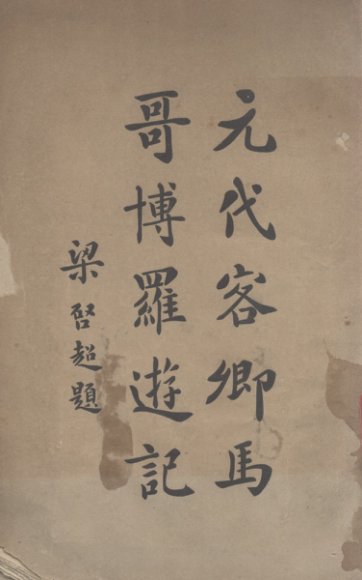 元代客卿馬
哥博羅遊記
梁啓超題